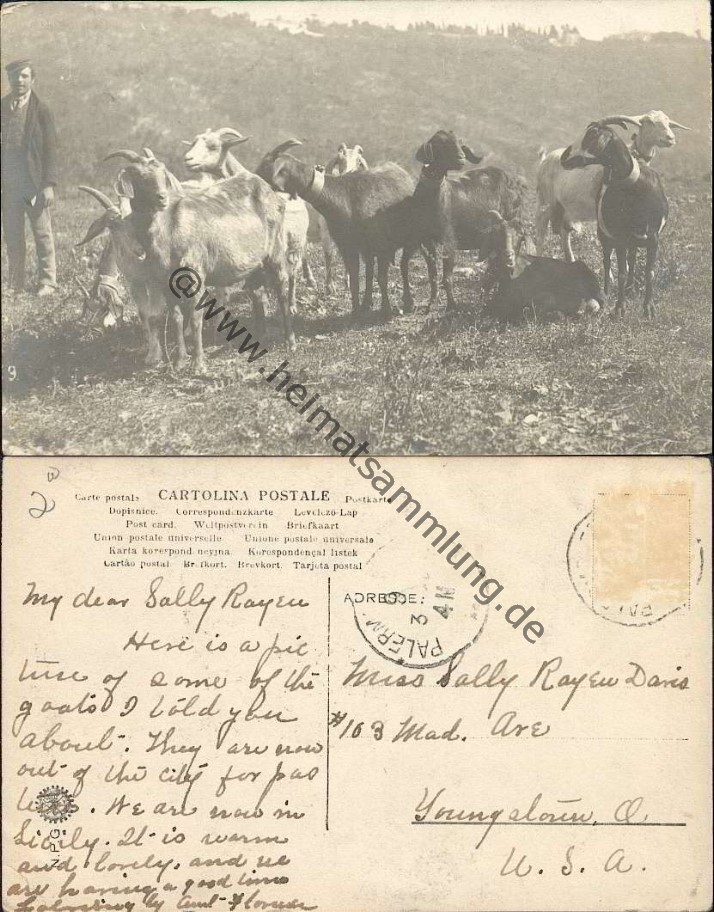 9
@www.heimatsammlung.de
2
Carte postale CARTOLINA POSTALE Postkarte
Dopisnice. Correspondenzkarte Levelező-Lap
Post card. Weltpostverein Briefkaart
Union postale universelle. Unione postale universale
Karta korespondencyjna. Korespondenčal listek
Cartão postal Brefkort. Brevkort. Tarjeta postal
My dear Sally Rayen
Here is a pic
ture of some of the
goats I told you
about. They are now
out of the city for pas
We are now in
Sicily. It is warm
and lovely, and we
are having a good time
by Aunt Florence
NPG
ADRESSE:
PALERM
3
4 M
PAL
Miss Sally Rayen Davis
#103 Mad. Ave
Youngstown, O.
U. S. A.